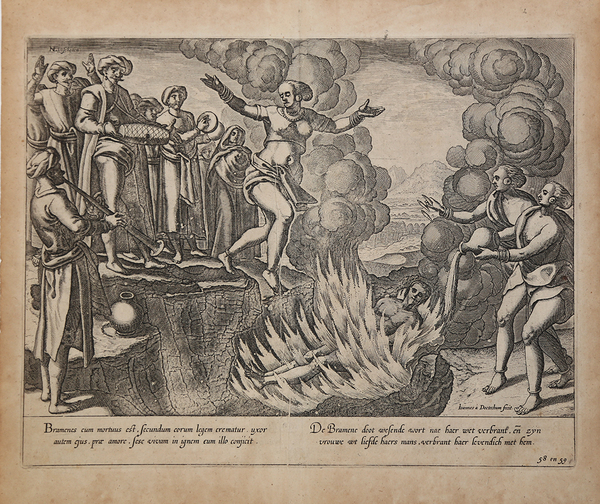 Ioannes à Doetechum fecit
Bramenes cum mortuus est, secundum eorum legem crematur. uxor
autem ejus, præ amore, sese vivam in ignem cum illo conjicit.
De Bramene doot wesende wort nae haer wet verbrant, eñ zyn
vrouwe wt liefde haers mans, verbrant haer levendich met hem.
58 en 59